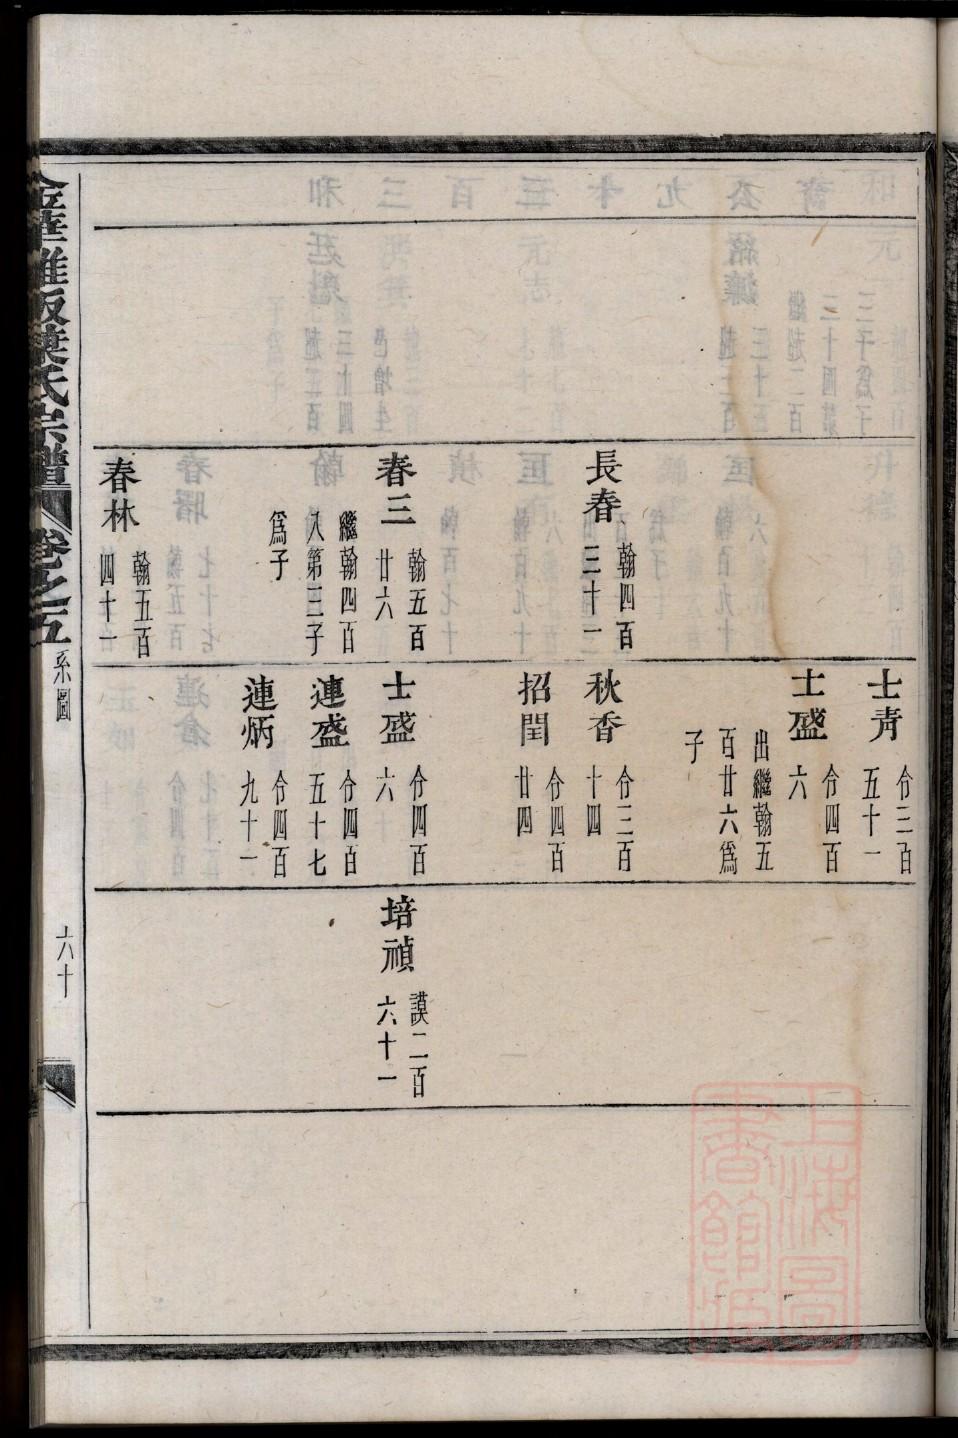 長春 翰四百三十一
春三 翰五百廿六
繼翰四百
八第三子
爲子
春林 翰五百四十一
士青 令三百五十一
士盛 令四百六
出繼翰五
百廿六爲
子
秋香 令三百十四
招閏 令四百廿四
士盛 令四百六
連盛 令四百五十七
連炳 令四百九十一
培禎 謨二百六十一
葉氏宗譜
卷之五
系圖
六十
上海圖書館